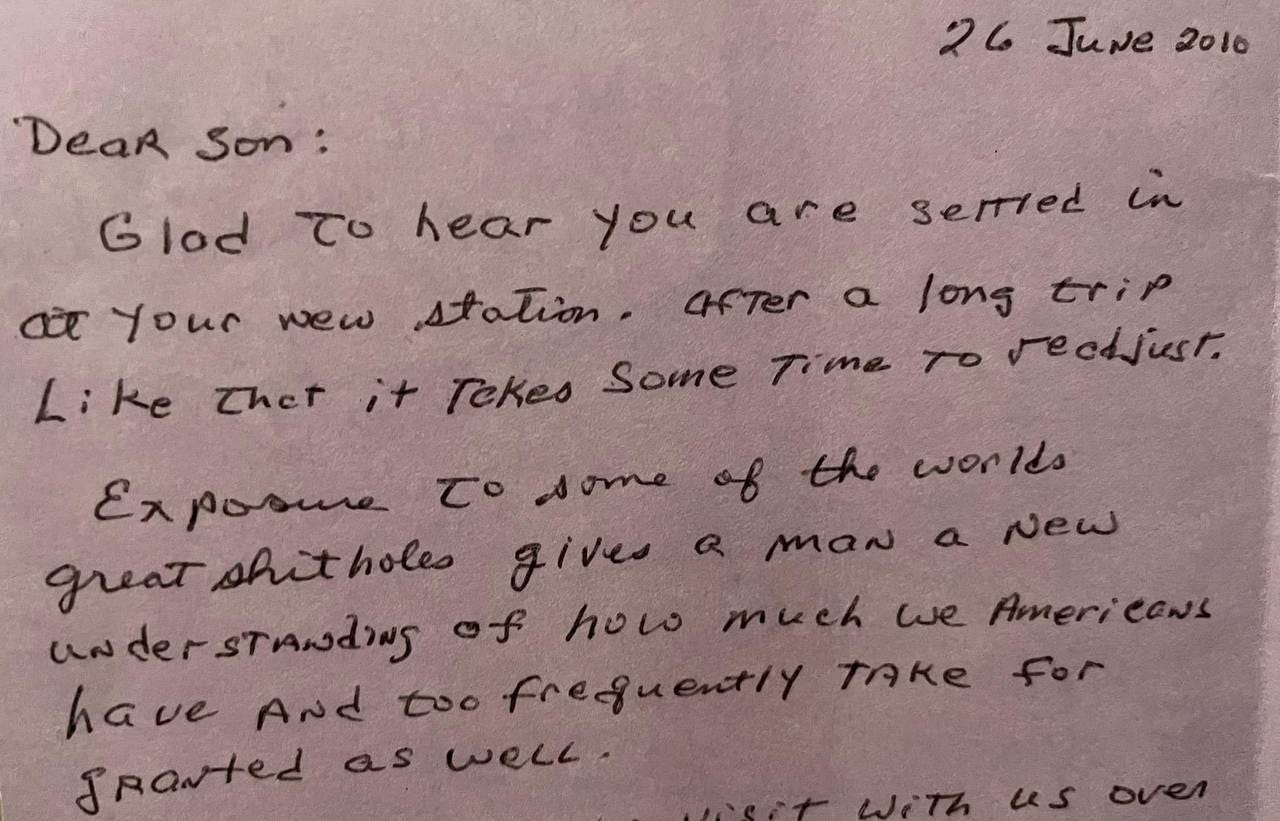 26 June 2010
Dear Son:
Glad to hear you are settled in
at your new station. After a long trip
Like that it takes some time to readjust.
Exposure to some of the worlds
great shitholes gives a man a new
understanding of how much we Americans
have and too frequently take for
granted as well.
visit with us over